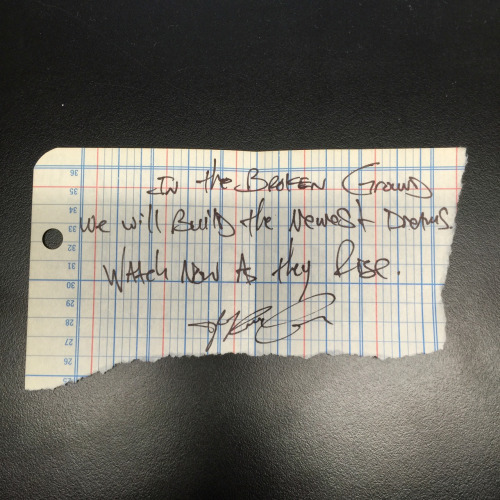 In the Broken Ground
we will Build the Newest Dreams.
Watch Now As they Rise.
36
35
34
33
32
31
30
29
28
27
26